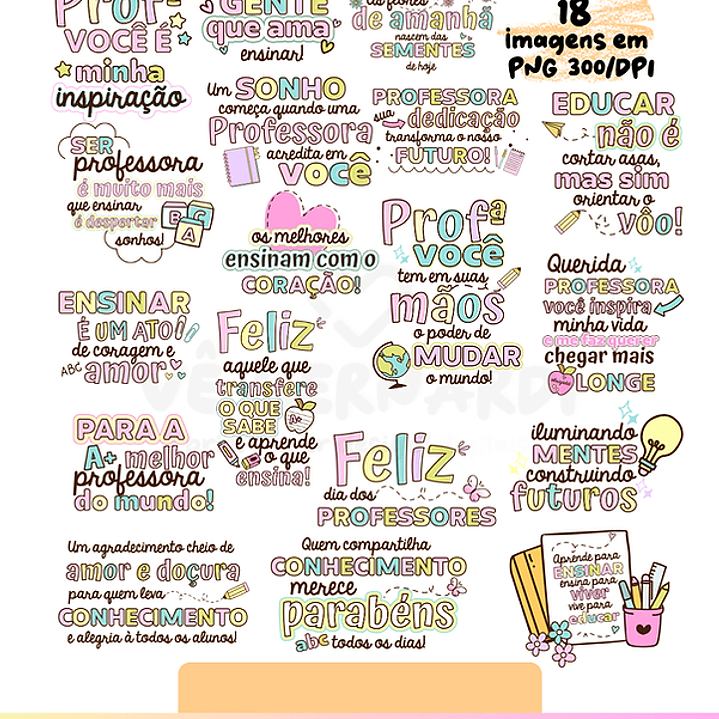 Profª
VOCÊ É
minha
inspiração
GENTE
que ama
ensinar!
as flores
de amanhã
nascem das
SEMENTES
de hoje
18
imagens em
PNG 300/DPI
SER
professora
é muito mais
que ensinar
é despertar
sonhos!
B C
A
Um SONHO
começa quando uma
Professora
acredita em
você
PROFESSORA
sua dedicação
transforma o nosso
FUTURO!
EDUCAR
não é
cortar asas,
mas sim
orientar o
vôo!
os melhores
ensinam com o
CORAÇÃO!
Profª
você
tem em suas
mãos
o poder de
MUDAR
o mundo!
Querida
PROFESSORA
você inspira
minha vida
e me faz querer
chegar mais
LONGE
ENSINAR
É UM ATO
de coragem e
ABC amor
Feliz
aquele que
transfere
O QUE
SABE
e aprende
o que
ensina!
PARA A
A+ melhor
professora
do mundo!
Feliz
dia dos
PROFESSORES
iluminando
MENTES
construindo
futuros
Um agradecimento cheio de
amor e doçura
para quem leva
CONHECIMENTO
e alegria à todos os alunos!
Quem compartilha
CONHECIMENTO
merece
parabéns
abc todos os dias!
Aprende para
ENSINAR
ensina para
viver
vive para
educar